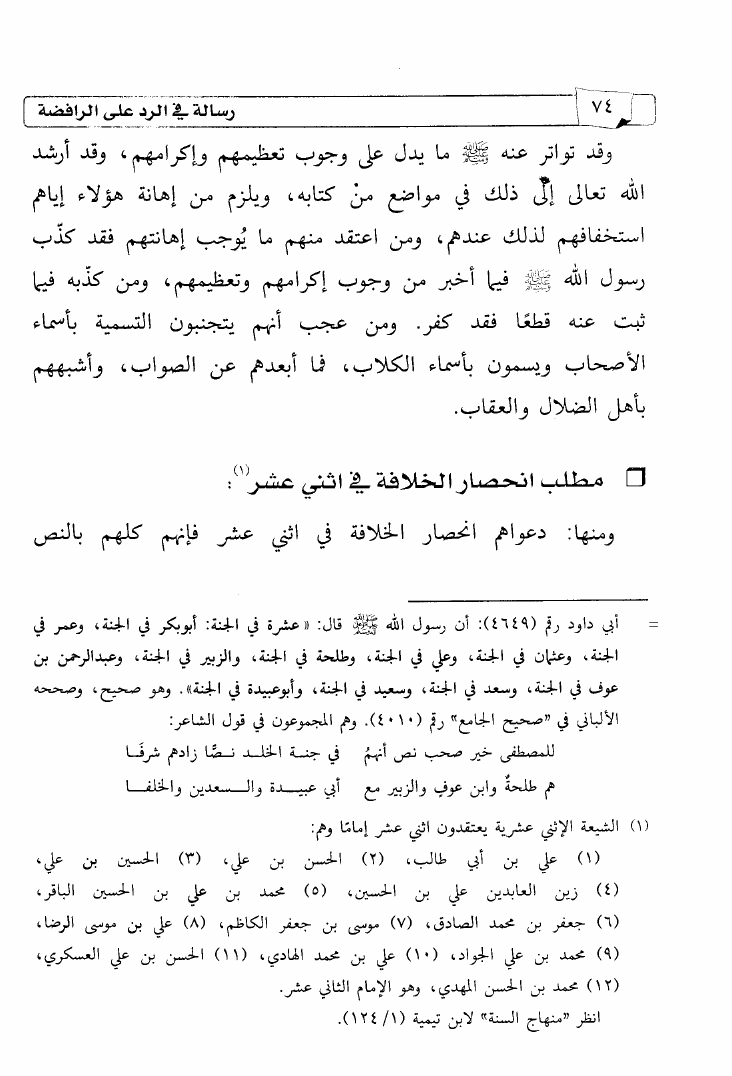 ٧٤
رسالة في الرد على الرافضة
وقد تواتر عنه ﷺ ما يدل على وجوب تعظيمهم وإكرامهم، وقد أرشد
الله تعالى إلى ذلك في مواضع منْ كتابه، ويلزم من إهانة هؤلاء إياهم
استخفافهم لذلك عندهم، ومن اعتقد منهم ما يُوجب إهانتهم فقد كذّب
رسول الله ﷺ فيما أخبر من وجوب إكرامهم وتعظيمهم، ومن كذّبه فيما
ثبت عنه قطعًا فقد كفر. ومن عجب أنهم يتجنبون التسمية بأسماء
الأصحاب ويسمون بأسماء الكلاب، فما أبعدهم عن الصواب، وأشبههم
بأهل الضلال والعقاب.
❒ مطلب انحصار الخلافة في اثني عشر(١):
ومنها: دعواهم انحصار الخلافة في اثني عشر فإنهم كلهم بالنص
= أبي داود رقم (٤٦٤٩): أن رسول الله ﷺ قال: «عشرة في الجنة: أبوبكر في الجنة، وعمر في
الجنة، وعثمان في الجنة، وعلي في الجنة، وطلحة في الجنة، والزبير في الجنة، وعبدالرحمن بن
عوف في الجنة، وسعد في الجنة، وسعيد في الجنة، وأبوعبيدة في الجنة». وهو صحيح، وصححه
الألباني في "صحيح الجامع" رقم (٤٠١٠). وهم المجموعون في قول الشاعر:
للمصطفى خير صحب نص أنهمُ في جنـة الخلـد نـصًّا زادهم شرفَـا
هم طلحةٌ وابن عوفٍ والزبير مع أبي عبيـدة والـسعدين والخلفـا
(١) الشيعة الإثني عشرية يعتقدون اثني عشر إمامًا وهم:
(١) علي بن أبي طالب، (٢) الحسن بن علي، (٣) الحسين بن علي،
(٤) زين العابدين علي بن الحسين، (٥) محمد بن علي بن الحسين الباقر،
(٦) جعفر بن محمد الصادق، (٧) موسى بن جعفر الكاظم، (٨) علي بن موسى الرضا،
(٩) محمد بن علي الجواد، (١٠) علي بن محمد الهادي، (١١) الحسن بن علي العسكري،
(١٢) محمد بن الحسن المهدي، وهو الإمام الثاني عشر.
انظر "منهاج السنة" لابن تيمية (١/ ١٢٤).